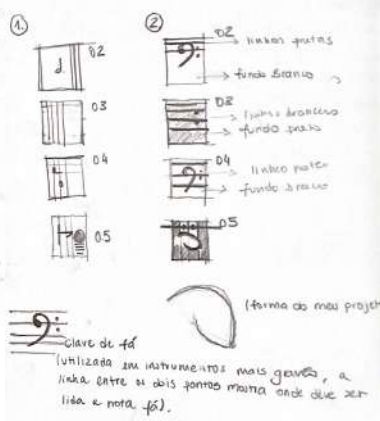 1.
02
d.
03
04
05
2
02
linhas pretas
fundo Branco
03
fundo preto
04
fundo Branco
05
(forma do meu projet
clave de fá
(utilizada em instrumentos mais graves, a
linha entre os dois pontos mostra onde deve ser
lida a nota fá).